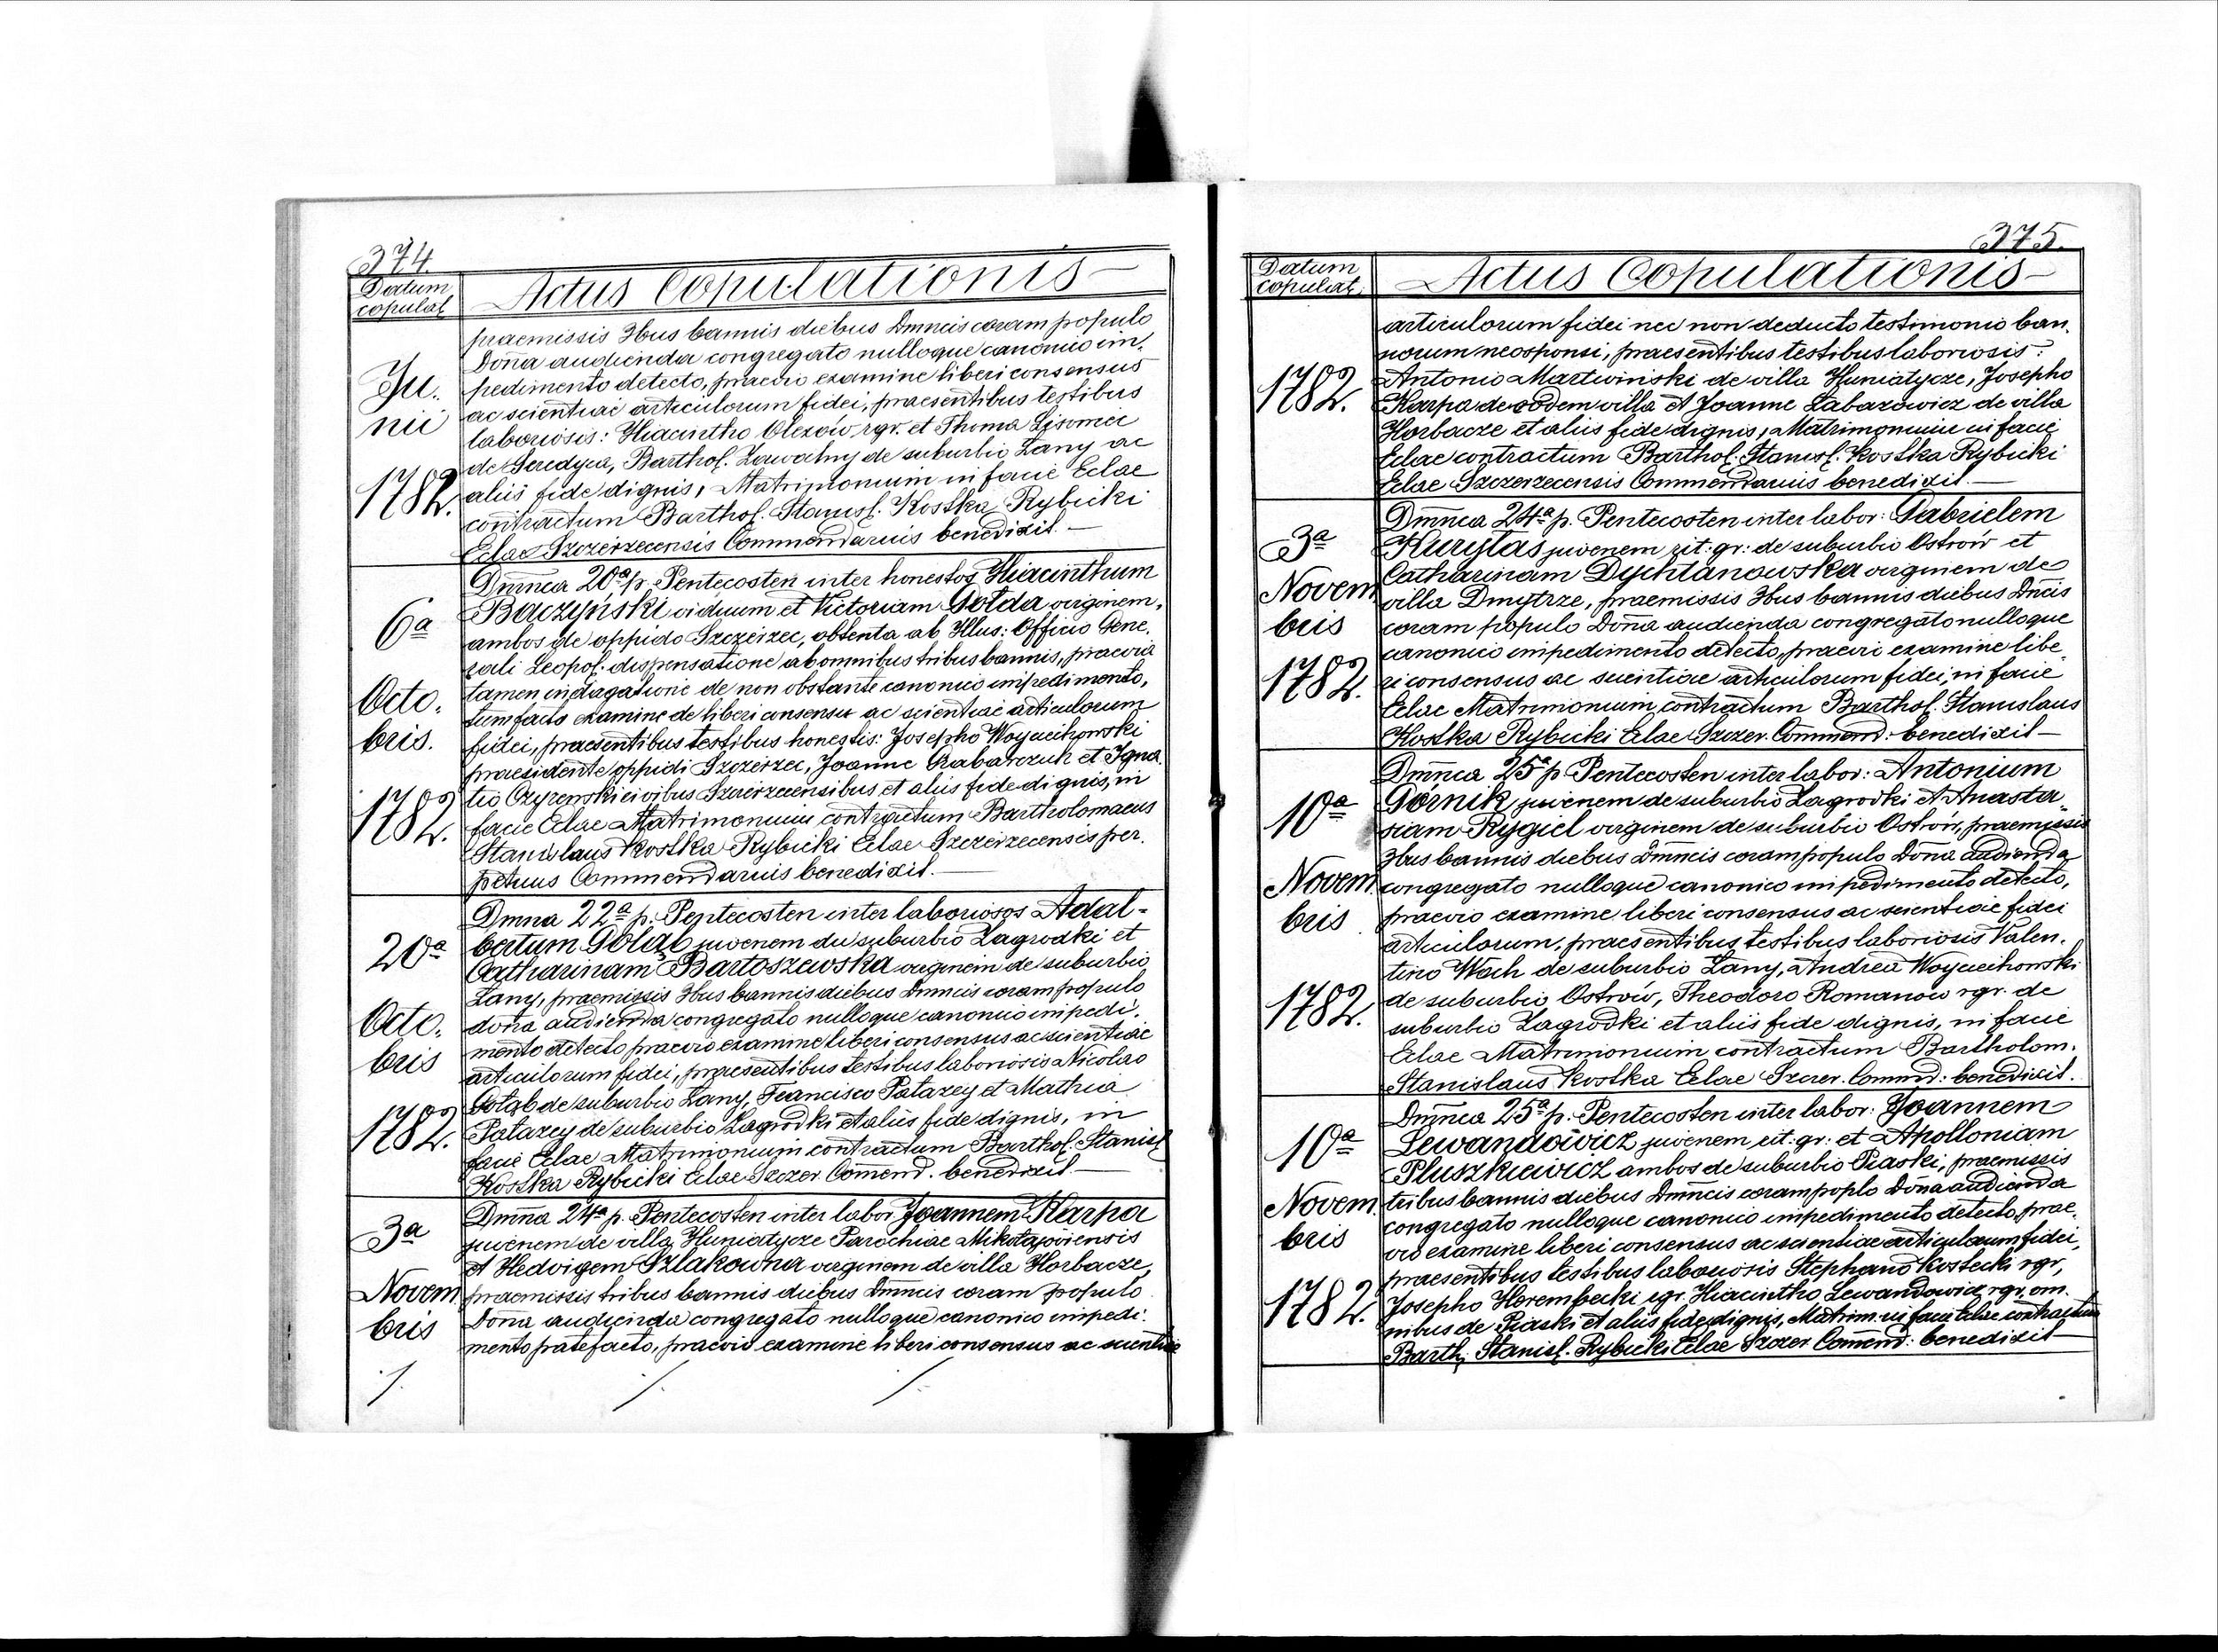 374.
Datum
copulat.
Actus Copulationis
Ju.
nii
1782.
praemissis 3bus bannis diebus Dmncis coram populo
Dona audienda congregato nulloque canonico im.
pedimento detecto, praevio examine liberi consensus
ac scientiae articulorum fidei, praesentibus testibus
laboriosis: Hiacintho Olexow rgr. et Thoma Lisowicz
de Seredyca, Barthol. Zawalny de suburbio Lany ac
aliis fide dignis, Matrimonium in facie Eclae
contractum Barthol. Stanisl. Kostka Rybicki
Eclae Szczerzecensis Commendarius benedixit.
6a
Octo.
bris.
1782.
Dmnca 20a p. Pentecosten inter honestos Hiacinthum
Baczyński viduum et Victoriam Gołda virginem,
ambos de oppido Szczerzec, obtenta ab Illus: Officio Gene.
rali Leopol: dispensatione ab omnibus tribus bannis, praevia
tamen indagatione de non obstante canonico impedimento,
tum facto examine de liberi consensu ac scientiae articulorum
fidei, praesentibus testibus honestis: Josepho Woyciechowski
praesidente oppidi Szczerzec, Joanne Grabarczuk et Igna.
tio Czyrenski civibus Szczerzecensibus et aliis fide dignis, in
facie Eclae Matrimonium contractum Bartholomaeus
Stanislaus Kostka Rybicki Eclae Szczerzecensis per.
petuus Commendarius benedixit.
20a
Octo.
bris
1782.
Dmna 22a p. Pentecosten inter laboriosos Adal-
bertum Gołąb juvenem de suburbio Zagrodki et
Catharinam Bartoszewska virginem de suburbio
Lany, praemissis 3bus bannis diebus Dmncis coram populo
dona audienda congregato nulloque canonico impedi.
mento detecto praevio examine liberi consensus ac scientiae
articulorum fidei, praesentibus testibus laboriosis Nicolao
Gołąb de suburbio Lany, Francisco Patazey et Mathia
Patazey de suburbio Zagrodki et aliis fide dignis, in
facie Eclae Matrimonium contractum Barthol. Stanisl
Kostka Rybicki Eclae Szczer. Comend. benedixit.
3a
Novem
bris
Dmna 24a p. Pentecosten inter labor Joannem Karpa
juvenem de villa Huniatycze Parochiae Mikołajoviensis
et Hedvigem Szlakowna virginem de villa Horbacze,
praemissis tribus bannis diebus Dmncis coram populo
Dona audienda congregato nulloque canonico impedi.
mento patefacto, praevio examine liberi consensus ac scientiae
./. ./. ./.
375.
Datum
copulat.
Actus Copulationis
1782.
articulorum fidei nec non deducto testimonio ban.
norum neosponsi, praesentibus testibus laboriosis:
Antonio Martwinski de villa Huniatycze, Josepho
Karpa de eodem villa et Joanne Łabazowicz de villa
Horbacze et aliis fide dignis, Matrimonium in facie
Eclae contractum Barthol. Stanisl. Kostka Rybicki
Eclae Szczerzecensis Commendarius benedixit.
3a
Novem
bris
1782.
Dmnca 24a p. Pentecosten inter labor: Gabrielem
Kurytas juvenem rit: gr: de suburbio Ostrów et
Catharinam Dychtanowska virginem de
villa Dmytrze, praemissis 3bus bannis diebus Dncis
coram populo Dona audienda congregato nulloque
canonico impedimento detecto, praevi examine libe.
ri consensus ac scientiae articulorum fidei, in facie
Eclae Matrimonium contractum Barthol. Stanislaus
Kostka Rybicki Eclae Szczer. Commend: benedixit
10a
Novem.
bris
1782.
Dmnca 25a p. Pentecosten inter labor: Antonium
Górnik juvenem de suburbio Zagrodki et Anasta.
siam Rygiel virginem de suburbio Ostrów, praemissis
3bus bannis diebus Dmncis coram populo Dona audienda
congregato nulloque canonico impedimento detecto,
praevio examine liberi consensus ac scientiae fidei
articulorum, praesentibus testibus laboriosis Valen.
tino Wach de suburbio Lany, Andrea Woyciechowski
de suburbio Ostrów, Theodoro Romanow rgr. de
suburbio Zagrodki et aliis fide dignis, in facie
Eclae Matrimonium contractum Bartholom.
Stanislaus Kostka Eclae Szczer. Commd: benedixit.
10a
Novem
bris
1782.
Dmnca 25a p. Pentecosten inter labor: Joannem
Lewandowicz juvenem rit. gr: et Apolloniam
Pluszkiewicz ambos de suburbio Piaski, praemissis
tribus bannis diebus Dmncis coram poplo Dona audienda
congregato nulloque canonico impedimento detecto, prae.
vio examine liberi consensus ac scientiae articulorum fidei,
praesentibus testibus laboriosis Stephano Kostecki rgr,
Josepho Herembecki rgr. Hiacintho Lewandowicz rgr. om.
nibus de Piaski et aliis fide dignis, Matrim. in facie Eclae contractum
Barth. Stanisl. Rybicki Eclae Szczer Comend: benedixit